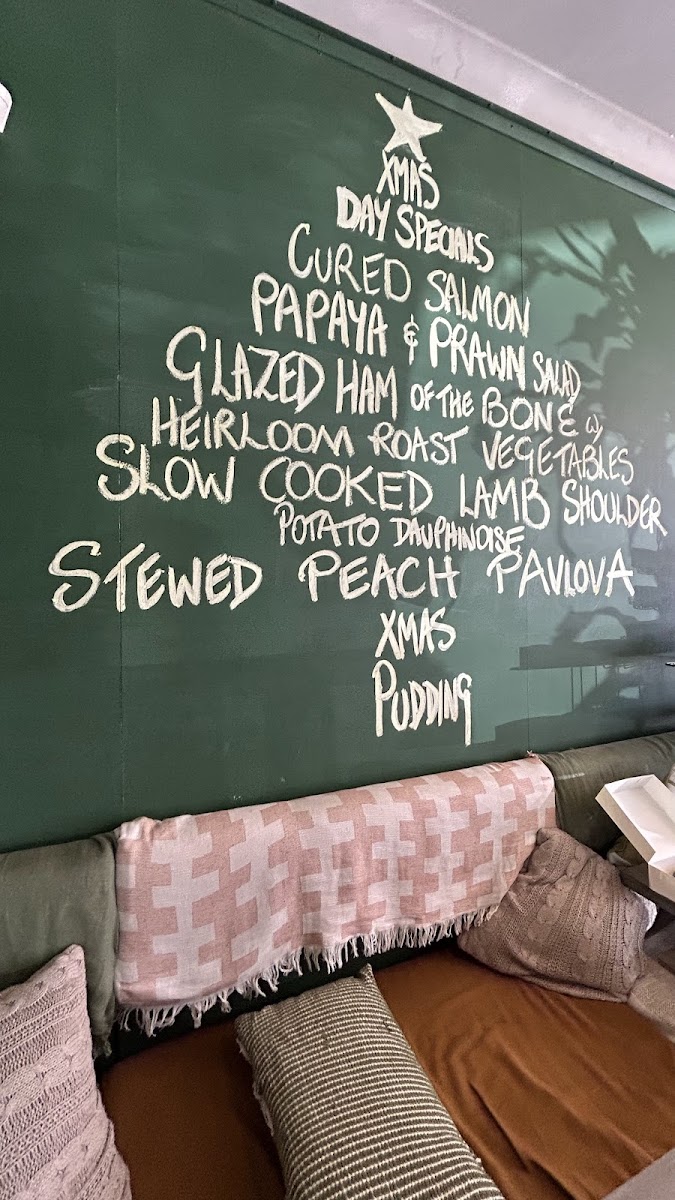 XMAS
DAY SPECIALS
CURED SALMON
PAPAYA & PRAWN SALAD
GLAZED HAM OF THE BONE w/
HEIRLOOM ROAST VEGETABLES
SLOW COOKED LAMB SHOULDER
POTATO DAUPHINOISE
STEWED PEACH PAVLOVA
XMAS
PUDDING